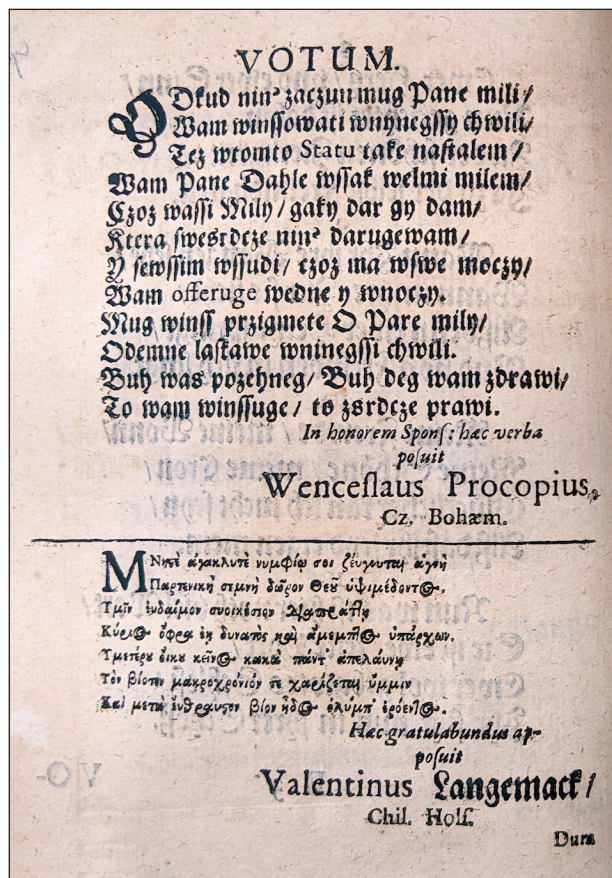 VOTUM.
ODkud nin² zaczun mug Pane mili/
Wam winssowati wnynegssy chwili/
Tez wtomto Statu take nastalem/
Wam Pane Dahle wssak welmi milem/
Czoz wassi Mily/ gaky dar gy dam/
Ktera swesrdcze nin² darugewam/
Y sewssim wssudi/ czoz ma wswe moczy/
Wam offeruge wedne y wnoczy.
Mug winss przigmete O Pare mily/
Odemne laskawe wninegssi chwili.
Buh was pozehneg/ Buh deg wam zdrawi/
To wam winssuge/ to zsrdcze prawi.
In honorem Sponſ: hæc verba
poſuit
Wenceſlaus Procopius,
Cz. Bohæm.
ΜΝηςὲ ἀγακλυτὲ νυμφίῳ σοι ζέυγνυται ἁγνὴ
Παρτενικὴ σεμνὴ δῶρον Θεοῦ ὑψιμέδοντος.
Ὑμῖν ἐυδαίμον
Κύριος ὄφρα ἐη δυνατὸς καὶ ἀμεμπτος ὑπάρχων.
Ὑμετέρου ὀικου κεῖνος κακὰ πάντ' ἀπελάυνῃ
Τὸν βίοτην μακροχρόνιόν τε χαρίζεται ὔμμιν
Καὶ μετὰ βίον ἠδὸς ὀλύμπ' ἐρόεντος.
Hæc gratulabundus ap-
poſuit
Valentinus Langemack/
Chil. Holſ.
Dum